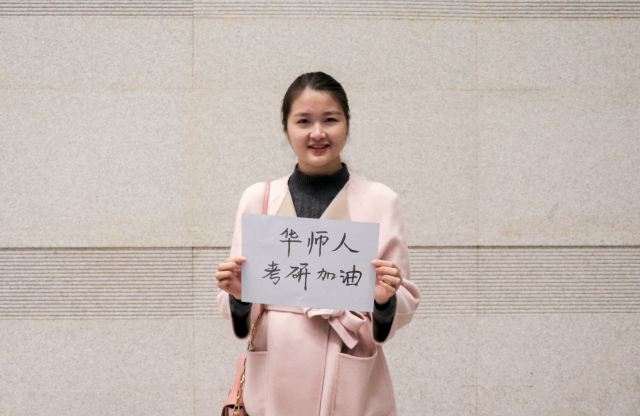 华师人
考研加油